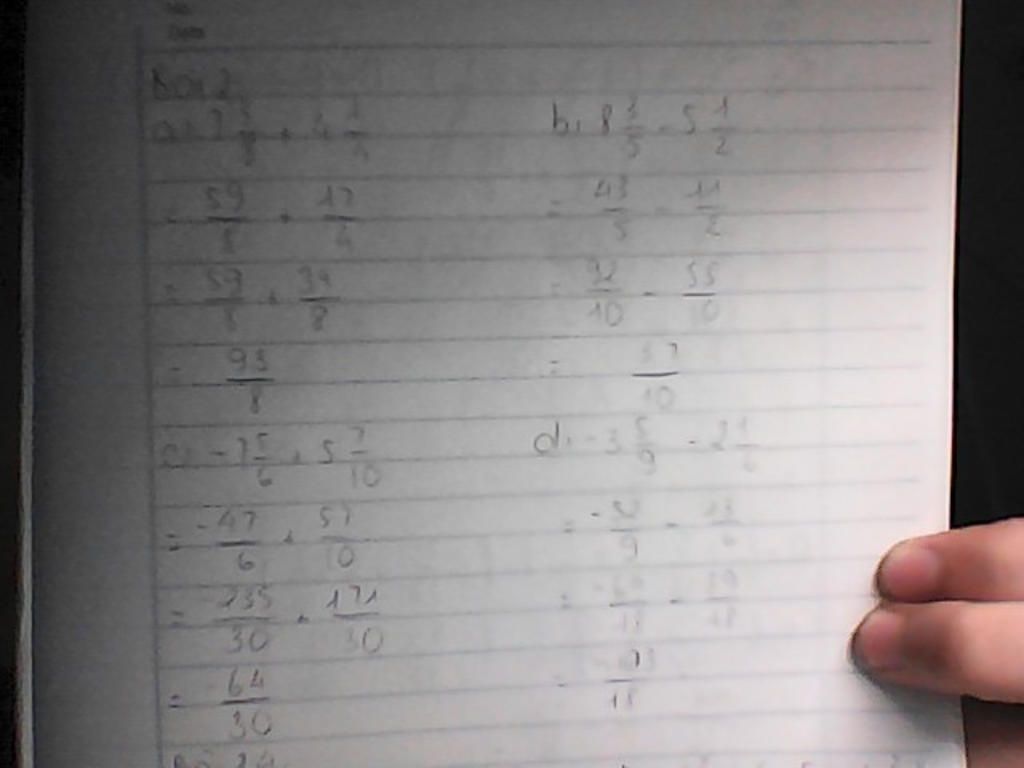 Bài 2
a, 7 3/8 + 4 1/4
= 59/8 + 17/4
= 59/8 + 34/8
= 93/8
b, 8 3/5 - 5 1/2
= 43/5 - 11/2
= /10 - 55/10
= /10
c, -7 5/6 + 5 7/10
= -47/6 + 57/10
= -235/30 + 171/30
= -64/30
d, -3 5/9 - 2 1/6
= -32/9 - 13/6
= -64/18 - 39/18
= -103/18